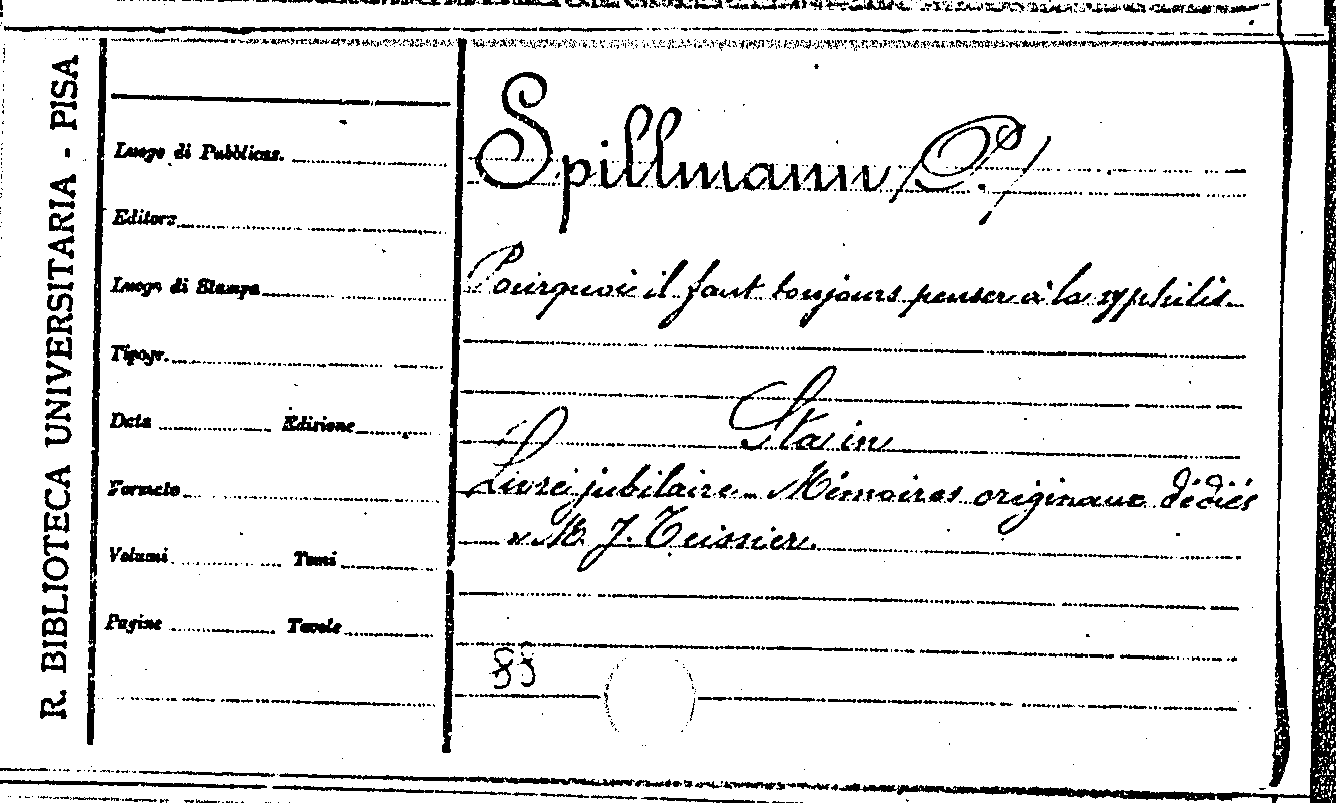 R. BIBLIOTECA UNIVERSITARIA - PISA
Luogo di Pubblicaz.
Editore
Luogo di Stampa
Tipogr.
Data Edizione
Formato
Volumi Tomi
Pagine Tavole
Spillmann (P.)
Pourquoi il faut toujours penser à la syphilis
Sta in
Livre jubilaire. Mémoires originaux dédiés
a M. J. Teissier.